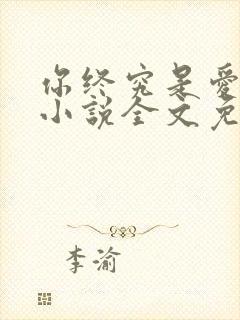 你终究是爱
小说全文免
李渝